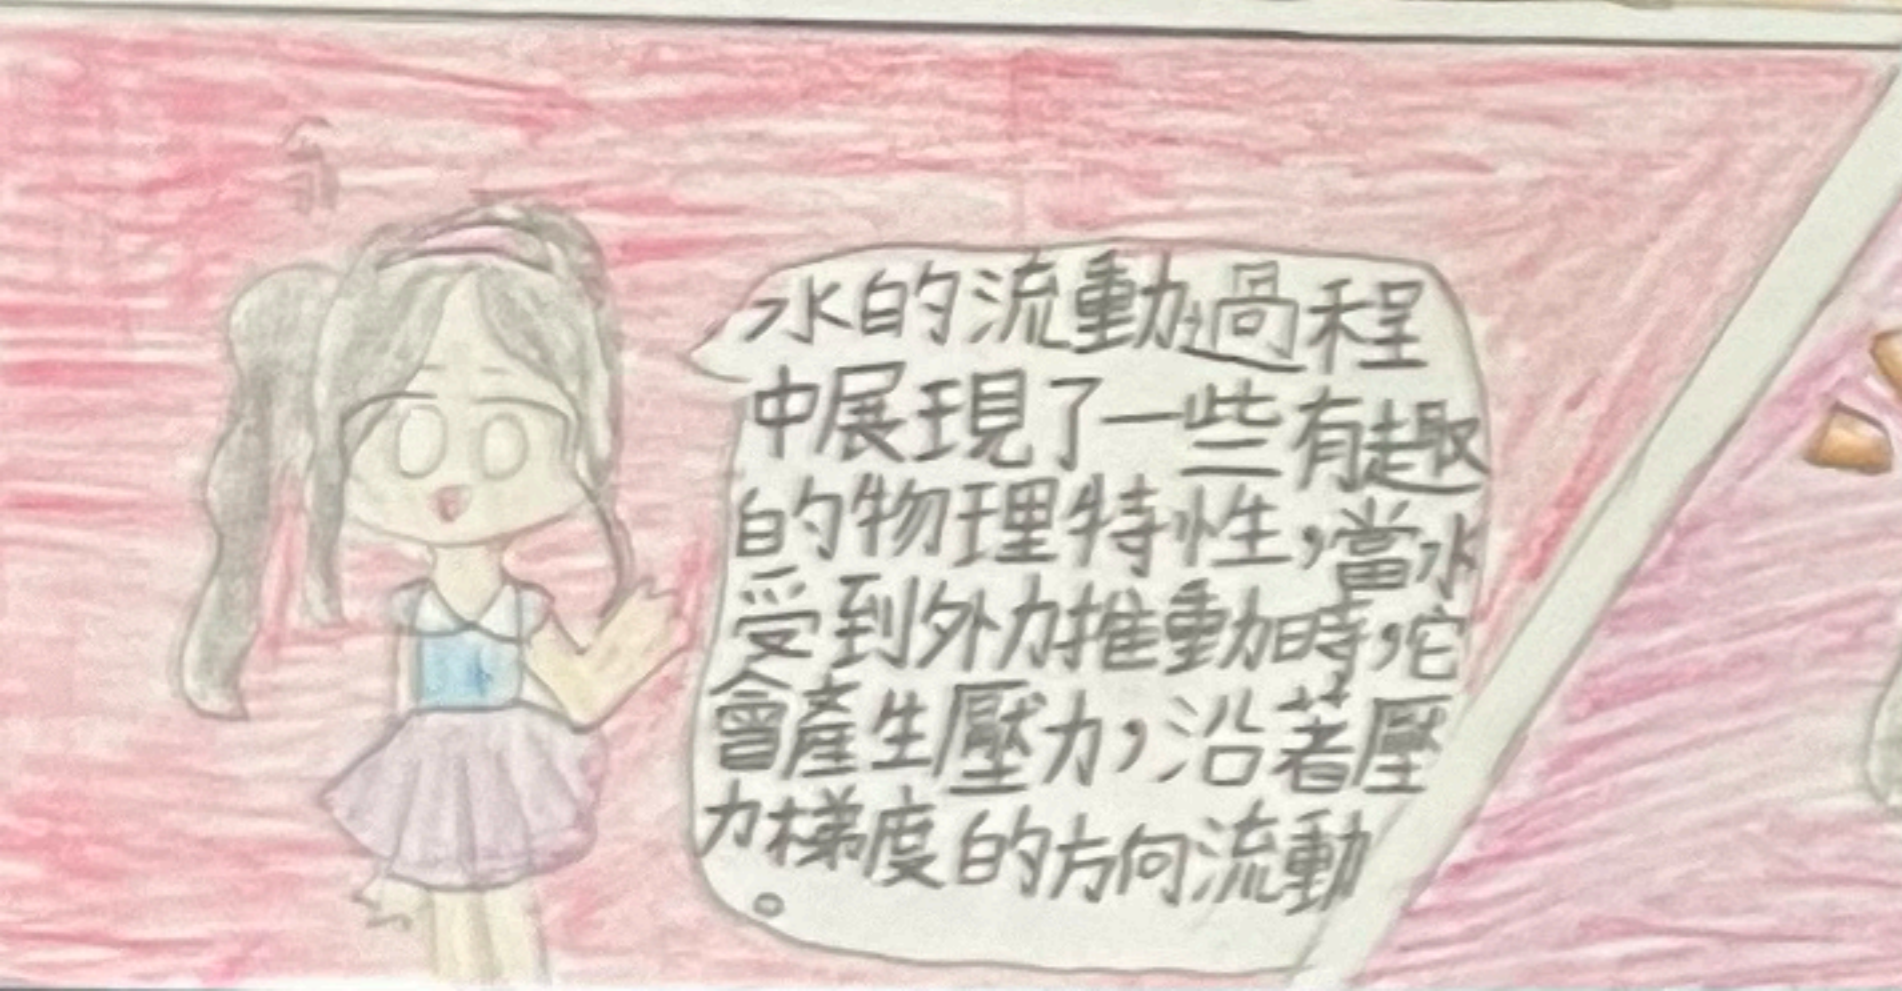 水的流動過程
中展現了一些有趣
的物理特性,當水
受到外力推動時,它
會產生壓力,沿著壓
力梯度的方向流動
。